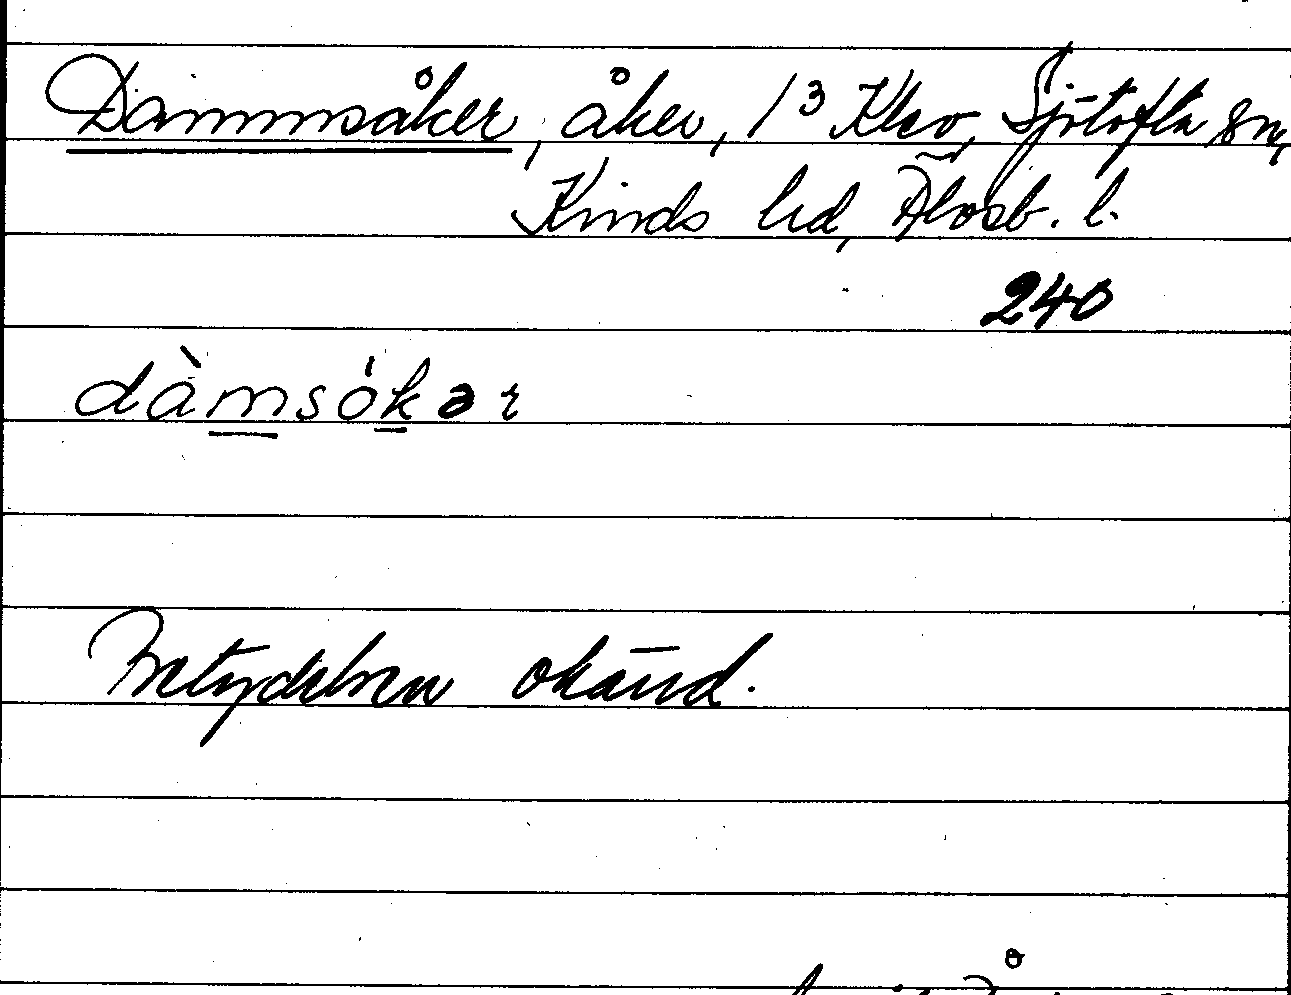 Dammsåker, åker, 1³ Klev, Sjötofta sn,
Kinds hd, Älvsb. l.
240
dàmsókər
Betydelsen okänd.